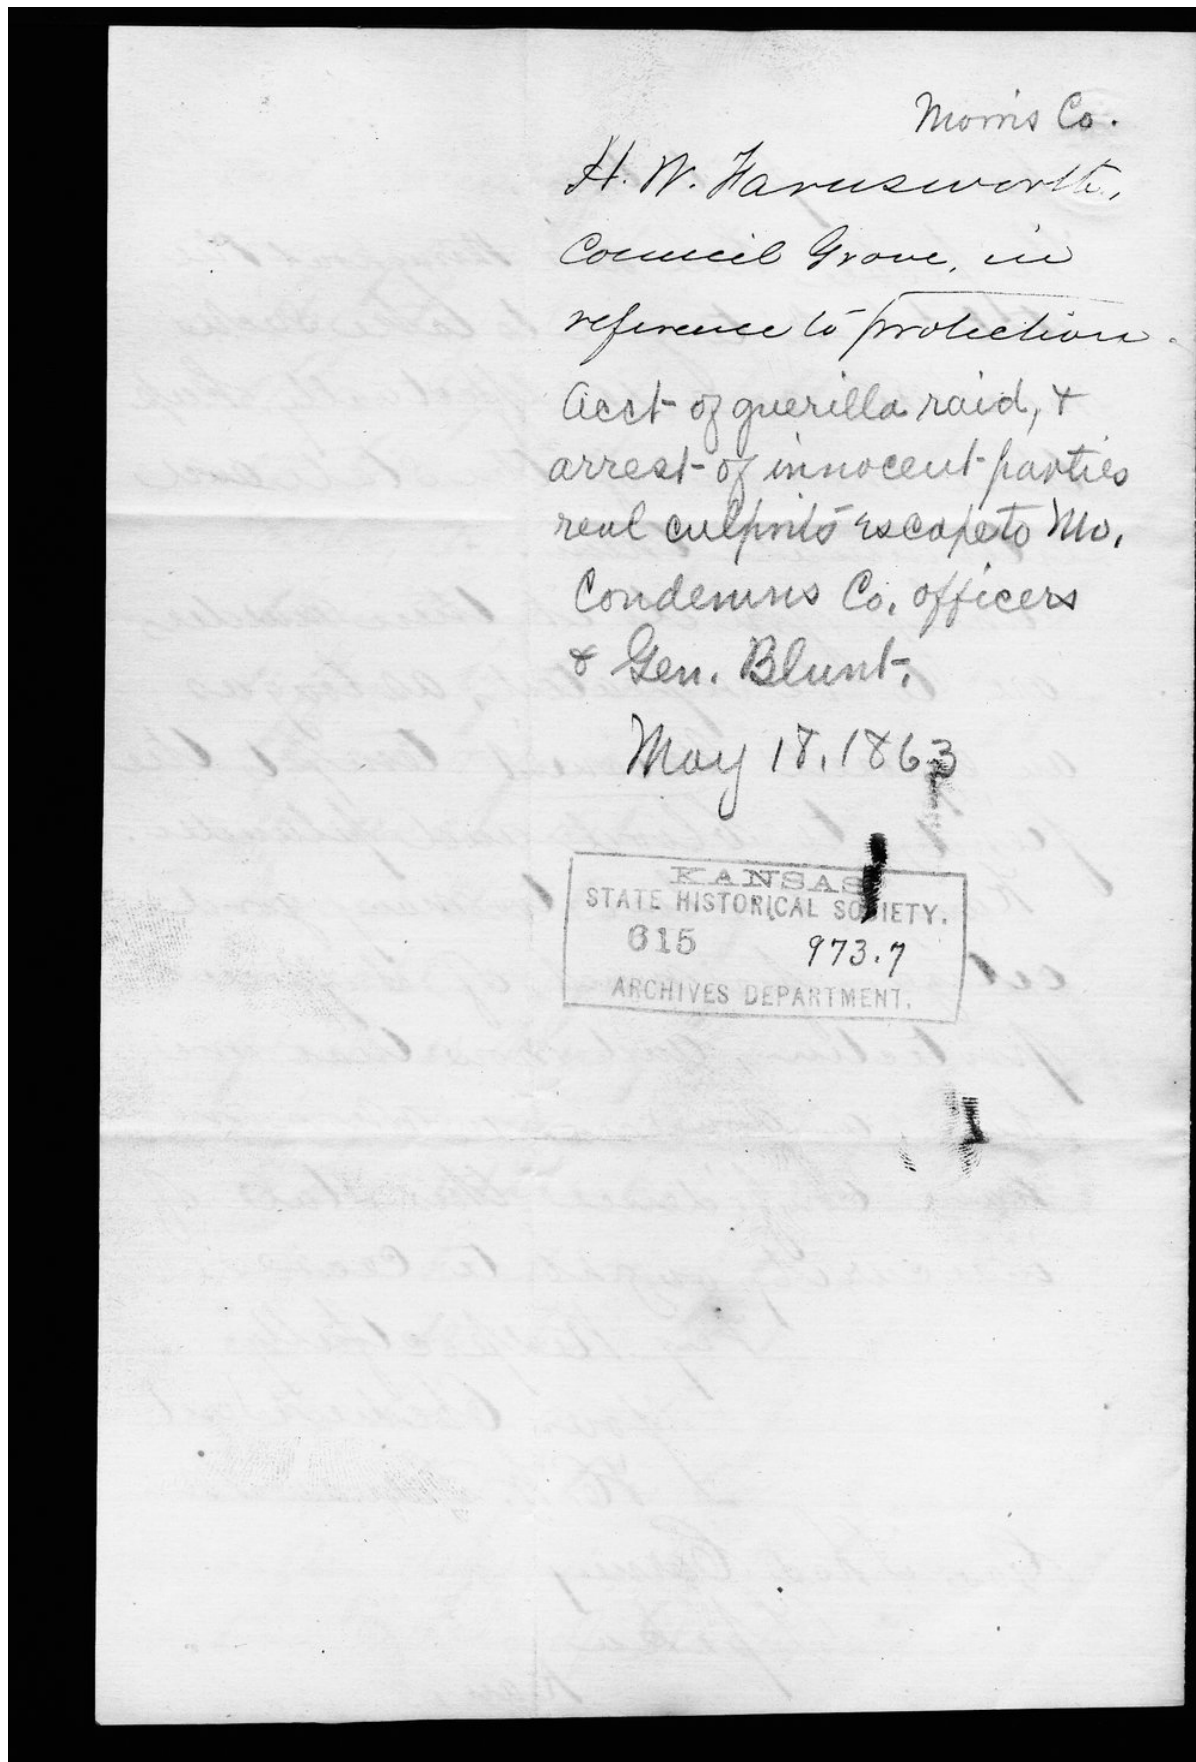 Morris Co.
H. W. Farnsworth,
Council Grove, in
reference to protection.
Acct of guerilla raid, &
arrest of innocent parties
real culprits escape to Mo.
Condemns Co. officers
& Gen. Blunt.
May 18, 1863
KANSAS
STATE HISTORICAL SOCIETY.
615 973.7
ARCHIVES DEPARTMENT.